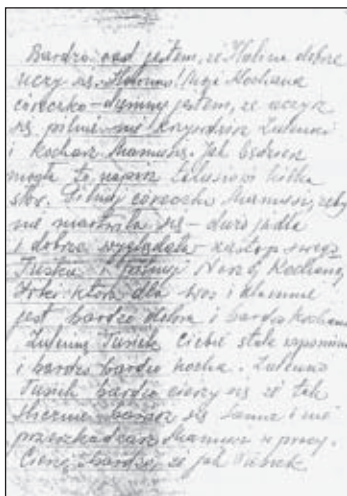 Bardzo rad jestem, że Halina dobrze
uczy się. Halino! Moja Kochana
córeczko – dumny jestem, że uczysz
się pilnie – nie krzywdzisz Zulenki
i kochasz Mamusię. Jak będziesz
mogła to napisz Tatusiowi kilka
słów. Pilnuj córeczko Mamusię, żeby
nie martwiła się – dużo jadła
i dobrze wyglądała – zastąp swego
Tuśka i pilnuj Naszej Kochanej
która dla Was i dla mnie
jest bardzo dobra i bardzo kochana
Zulenko Tusiek Ciebie stale wspomina
i bardzo bardzo kocha. Zulenko
Tusiek bardzo cieszy się że tak
ślicznie bawisz się sama i nie
przeszkadzasz Mamusi w pracy.
Cieszę bardzo, że jak Tusiek